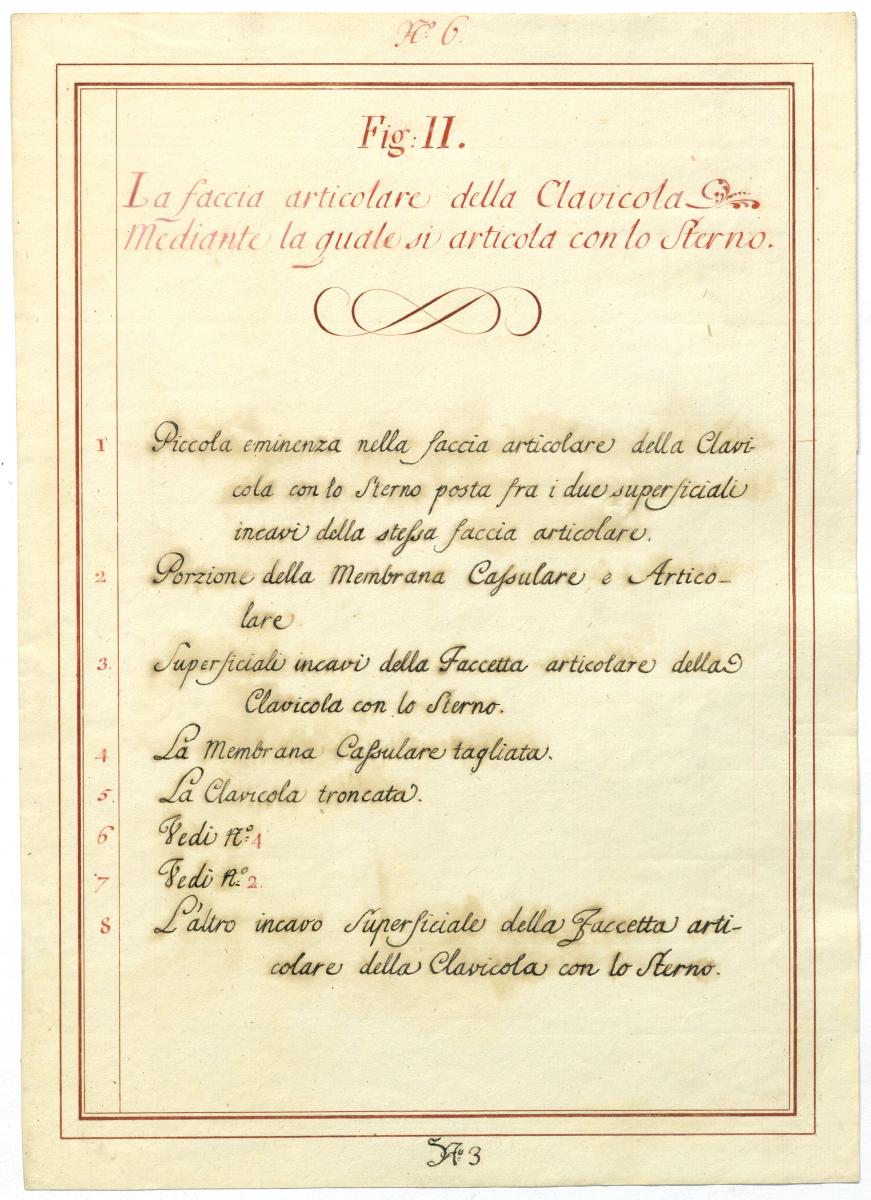 Nº 6.
Fig: II.
La faccia articolare della Clavicola
Mediante la quale si articola con lo Sterno.
1 Piccola eminenza nella faccia articolare della Clavi-
cola con lo Sterno posta fra i due superficiali
incavi della stessa faccia articolare.
2 Porzione della Membrana Cassulare e Artico-
lare
3. Superficiali incavi della Faccetta articolare della
Clavicola con lo Sterno.
4 La Membrana Cassulare tagliata.
5. La Clavicola troncata.
6 Vedi Nº 4
7 Vedi Nº 2.
8 L'altro incavo Superficiale della Faccetta arti-
colare della Clavicola con lo Sterno.
Nº 3